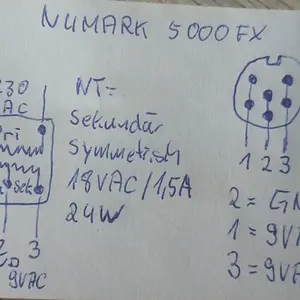 NUMARK 5000FX
230
AC
NT=
Sekundär
Symmetrish
18VAC/1,5A
24W
Pri
Sek
2 3
9VAC
1 2 3
2 = GN
1 = 9V
3 = 9VA